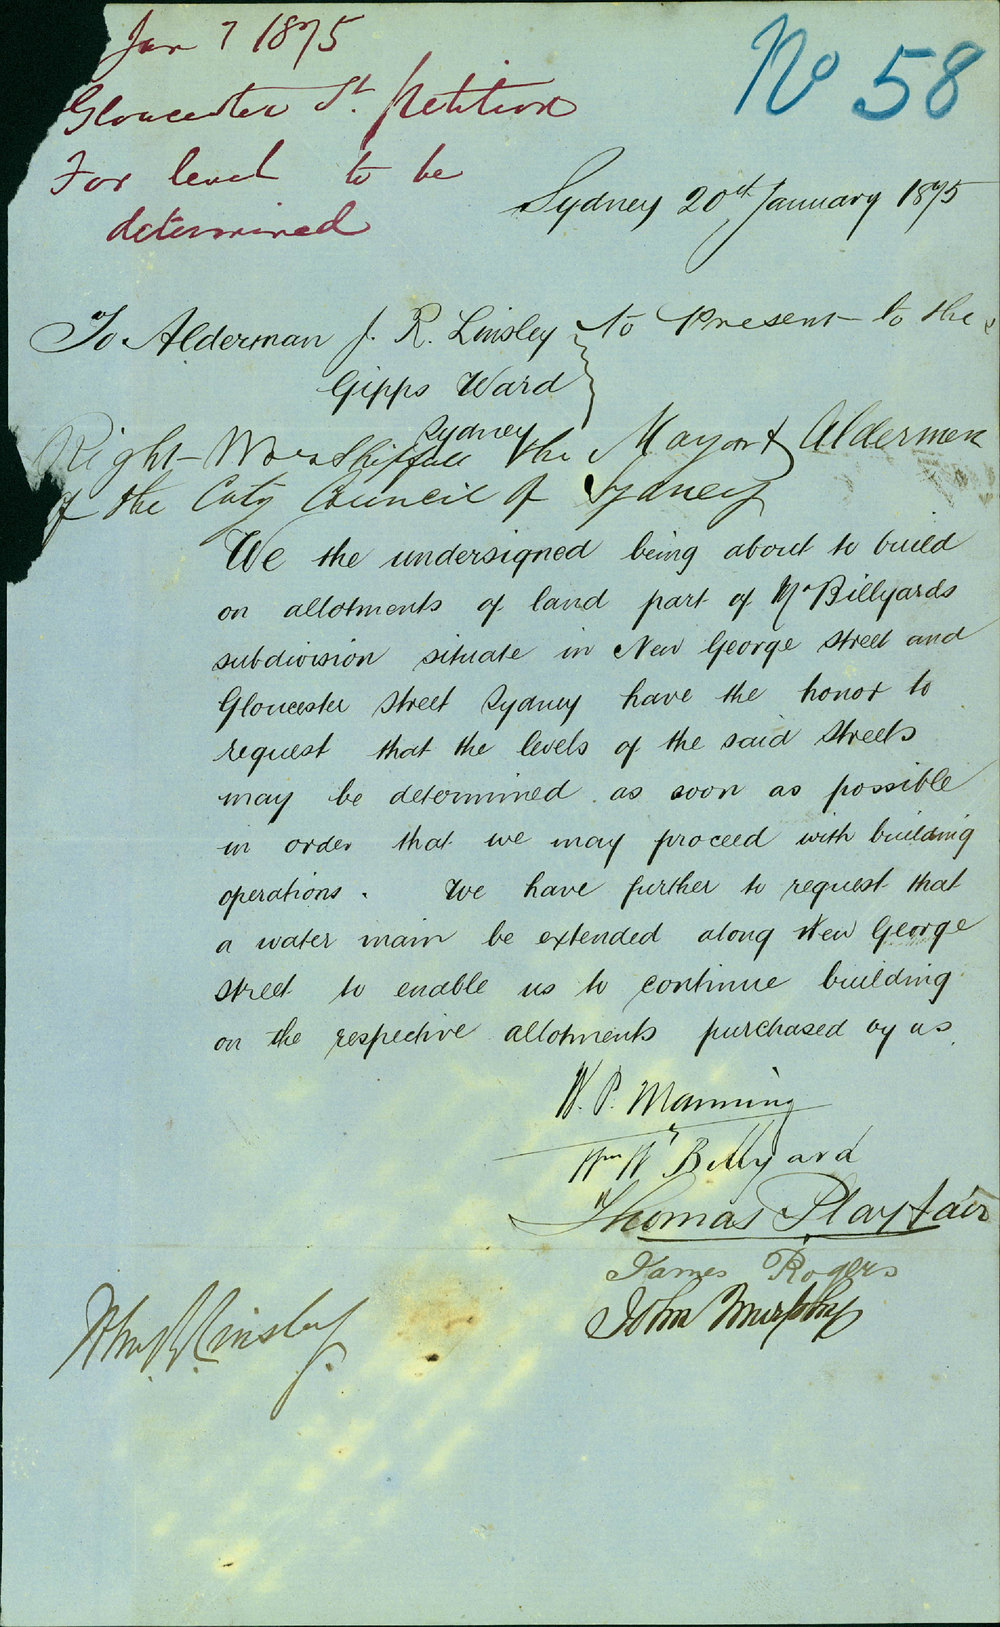 Jan 7 1875
Gloucester St. Petition
For level to be
determined
No 58
Sydney 20th January 1875
To Alderman J. R. Linsley to Present to the
Gipps Ward
Sydney
Right Worshipfull the Mayor & Aldermen
of the City Council of Sydney
We the undersigned being about to build
on allotments of land part of Mr Billyards
subdivision situate in New George Street and
Gloucester Street Sydney have the honor to
request that the levels of the said Streets
may be determined as soon as possible
in order that we may proceed with building
operations. We have further to request that
a water main be extended along New George
Street to enable us to continue building
on the respective allotments purchased by us.
W. P. Manning
Wm W Billyard
Thomas Playfair
James Rogers
John Murphy
John R Linsley